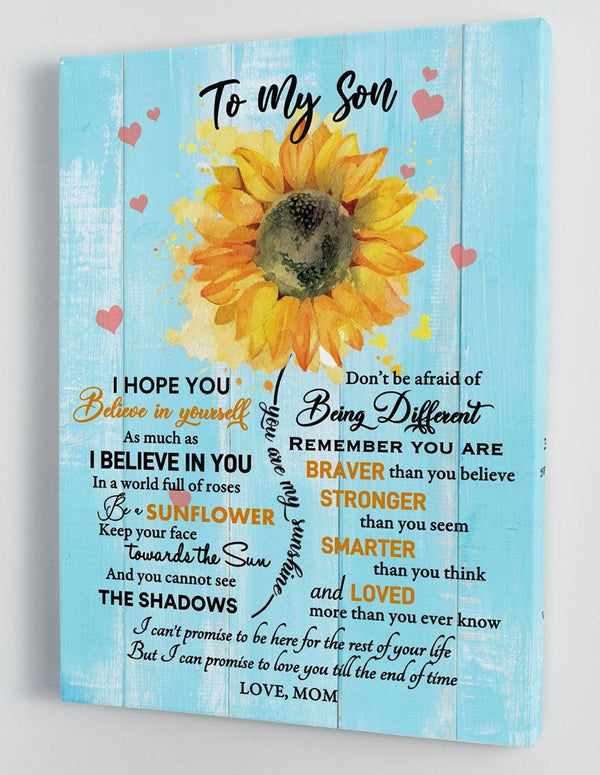 To My Son
I HOPE YOU
Believe in yourself
As much as
I BELIEVE IN YOU
In a world full of roses
Be a SUNFLOWER
Keep your face
towards the Sun
And you cannot see
THE SHADOWS
you are my sunshine
Don't be afraid of
Being Different
REMEMBER YOU ARE
BRAVER than you believe
STRONGER
than you seem
SMARTER
than you think
and LOVED
more than you ever know
I can't promise to be here for the rest of your life
But I can promise to love you till the end of time
LOVE, MOM